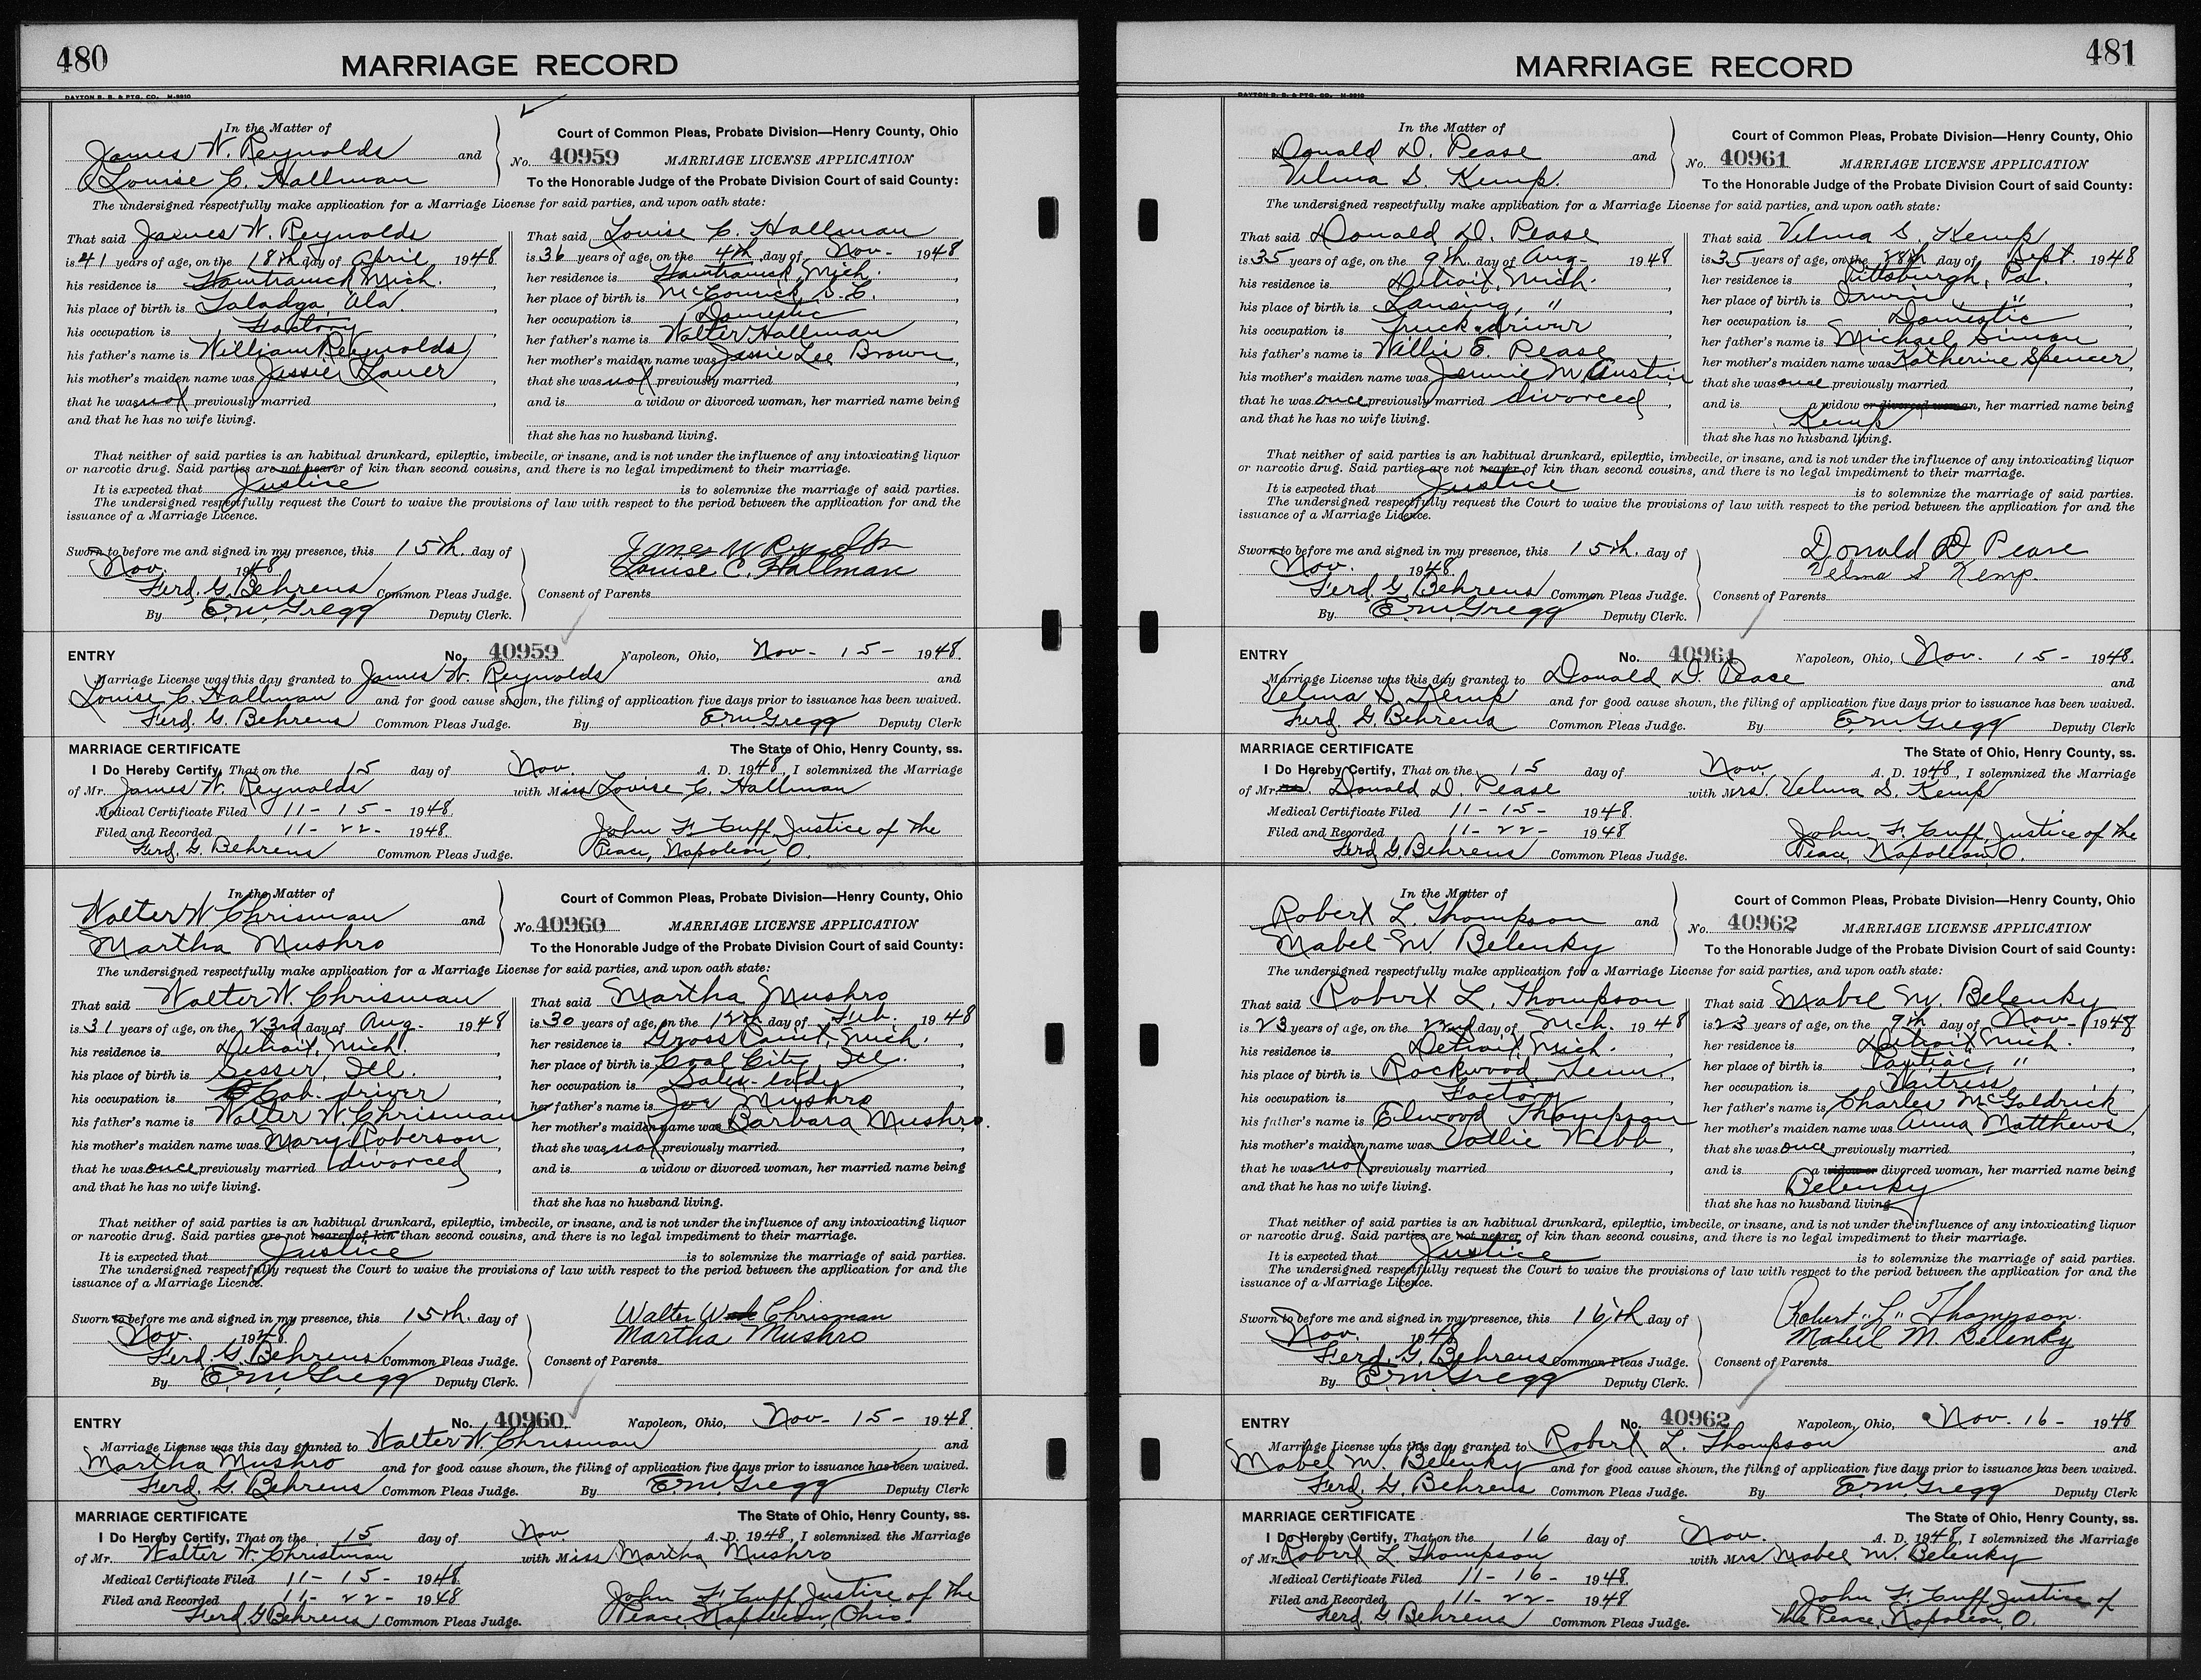 480
MARRIAGE RECORD
DAYTON B. B. & PTG. CO. M-9910
In the Matter of
James W. Reynolds and
Louise C. Hallman
Court of Common Pleas, Probate Division—Henry County, Ohio
No. 40959 MARRIAGE LICENSE APPLICATION
To the Honorable Judge of the Probate Division Court of said County:
The undersigned respectfully make application for a Marriage License for said parties, and upon oath state:
That said James W. Reynolds
is 41 years of age, on the 18th day of April 1948
his residence is Hamtramck Mich.
his place of birth is Taladga, Ala.
his occupation is Factory
his father's name is William Reynolds
his mother's maiden name was Jessie
that he was not previously married
and that he has no wife living.
That said Louise C. Hallman
is 36 years of age, on the 4th day of Nov- 1948
her residence is Hamtramck, Mich.
her place of birth is McCormick, S.C.
her occupation is Domestic
her father's name is Walter Hallman
her mother's maiden name was Jessie Lee Brown
that she was not previously married
and is a widow or divorced woman, her married name being
that she has no husband living.
That neither of said parties is an habitual drunkard, epileptic, imbecile, or insane, and is not under the influence of any intoxicating liquor
or narcotic drug. Said parties are not nearer of kin than second cousins, and there is no legal impediment to their marriage.
It is expected that Justice is to solemnize the marriage of said parties.
The undersigned respectfully request the Court to waive the provisions of law with respect to the period between the application for and the
issuance of a Marriage Licence.
Sworn to before me and signed in my presence, this 15th. day of
Nov. 1948
Ferd. G. Behrens Common Pleas Judge.
By E.M. Gregg Deputy Clerk.
James W Reynolds
Louise C. Hallman
Consent of Parents
ENTRY No. 40959 Napoleon, Ohio, Nov- 15- 1948.
Marriage License was this day granted to James W. Reynolds and
Louise C. Hallman and for good cause shown, the filing of application five days prior to issuance has been waived.
Ferd. G. Behrens Common Pleas Judge. By E.M. Gregg Deputy Clerk
MARRIAGE CERTIFICATE The State of Ohio, Henry County, ss.
I Do Hereby Certify, That on the 15 day of Nov. A. D. 1948, I solemnized the Marriage
of Mr. James W. Reynolds with Miss Louise C. Hallman
Medical Certificate Filed 11-15- 1948.
Filed and Recorded 11-22- 1948.
Ferd. G. Behrens Common Pleas Judge.
John F. Cuff, Justice of the
Peace, Napoleon, O.
In the Matter of
Walter W. Chrisman and
Martha Mushro
Court of Common Pleas, Probate Division—Henry County, Ohio
No. 40960 MARRIAGE LICENSE APPLICATION
To the Honorable Judge of the Probate Division Court of said County:
The undersigned respectfully make application for a Marriage License for said parties, and upon oath state:
That said Walter W. Chrisman
is 31 years of age, on the 23rd day of Aug- 1948
his residence is Detroit, Mich.
his place of birth is Sesser, Ill.
his occupation is Cab-driver
his father's name is Walter W. Chrisman
his mother's maiden name was Mary Roberson
that he was once previously married divorced
and that he has no wife living.
That said Martha Mushro
is 30 years of age, on the 12th day of Feb. 1948
her residence is Gross Point, Mich.
her place of birth is Coal City, Ill.
her occupation is Sales-lady
her father's name is Joe Mushro
her mother's maiden name was Barbara Mushro.
that she was not previously married
and is a widow or divorced woman, her married name being
that she has no husband living.
That neither of said parties is an habitual drunkard, epileptic, imbecile, or insane, and is not under the influence of any intoxicating liquor
or narcotic drug. Said parties are not nearer of kin than second cousins, and there is no legal impediment to their marriage.
It is expected that Justice is to solemnize the marriage of said parties.
The undersigned respectfully request the Court to waive the provisions of law with respect to the period between the application for and the
issuance of a Marriage Licence.
Sworn to before me and signed in my presence, this 15th. day of
Nov. 1948
Ferd. G. Behrens Common Pleas Judge.
By E.M. Gregg Deputy Clerk.
Walter W Chrisman
Martha Mushro
Consent of Parents
ENTRY No. 40960 Napoleon, Ohio, Nov- 15- 1948.
Marriage License was this day granted to Walter W. Chrisman and
Martha Mushro and for good cause shown, the filing of application five days prior to issuance has been waived.
Ferd. G. Behrens Common Pleas Judge. By E.M. Gregg Deputy Clerk
MARRIAGE CERTIFICATE The State of Ohio, Henry County, ss.
I Do Hereby Certify, That on the 15 day of Nov A. D. 1948, I solemnized the Marriage
of Mr. Walter W. Christman with Miss Martha Mushro
Medical Certificate Filed 11-15- 1948.
Filed and Recorded 11-22- 1948
Ferd. G Behrens Common Pleas Judge.
John F. Cuff, Justice of the
Peace, Napoleon, Ohio.
481
MARRIAGE RECORD
DAYTON B. B. & PTG. CO. M-9910
In the Matter of
Donald D. Pease and
Velma S. Kemp.
Court of Common Pleas, Probate Division—Henry County, Ohio
No. 40961 MARRIAGE LICENSE APPLICATION
To the Honorable Judge of the Probate Division Court of said County:
The undersigned respectfully make application for a Marriage License for said parties, and upon oath state:
That said Donald D. Pease
is 35 years of age, on the 9th. day of Aug- 1948
his residence is Detroit, Mich.
his place of birth is Lansing, "
his occupation is Truck-driver
his father's name is Willie E. Pease
his mother's maiden name was Jennie M. Austin
that he was once previously married divorced
and that he has no wife living.
That said Velma S. Kemp
is 35 years of age, on the 28th day of Sept. 1948
her residence is Pittsburgh, Pa.
her place of birth is Irwin, "
her occupation is Domestic
her father's name is Michael Simon
her mother's maiden name was Katherine Spencer
that she was once previously married
and is a widow or divorced woman, her married name being
Kemp
that she has no husband living.
That neither of said parties is an habitual drunkard, epileptic, imbecile, or insane, and is not under the influence of any intoxicating liquor
or narcotic drug. Said parties are not nearer of kin than second cousins, and there is no legal impediment to their marriage.
It is expected that Justice is to solemnize the marriage of said parties.
The undersigned respectfully request the Court to waive the provisions of law with respect to the period between the application for and the
issuance of a Marriage Licence.
Sworn to before me and signed in my presence, this 15th. day of
Nov. 1948.
Ferd. G. Behrens Common Pleas Judge.
By E.M. Gregg Deputy Clerk.
Donald D. Pease
Velma S Kemp.
Consent of Parents
ENTRY No. 40961 Napoleon, Ohio, Nov. 15- 1948.
Marriage License was this day granted to Donald D. Pease and
Velma S. Kemp and for good cause shown, the filing of application five days prior to issuance has been waived.
Ferd. G. Behrens Common Pleas Judge. By E.M. Gregg Deputy Clerk
MARRIAGE CERTIFICATE The State of Ohio, Henry County, ss.
I Do Hereby Certify, That on the 15 day of Nov. A. D. 1948, I solemnized the Marriage
of Mr. Donald D. Pease with Mrs. Velma S. Kemp
Medical Certificate Filed 11-15- 1948.
Filed and Recorded 11-22- 1948
Ferd. G. Behrens Common Pleas Judge.
John F. Cuff, Justice of the
Peace, Napoleon, O.
In the Matter of
Robert L. Thompson and
Mabel M. Belenky
Court of Common Pleas, Probate Division—Henry County, Ohio
No. 40962 MARRIAGE LICENSE APPLICATION
To the Honorable Judge of the Probate Division Court of said County:
The undersigned respectfully make application for a Marriage License for said parties, and upon oath state:
That said Robert L. Thompson
is 23 years of age, on the 22nd day of Mch. 1948
his residence is Detroit, Mich.
his place of birth is Rockwood, Tenn.
his occupation is Factory
his father's name is Elwood Thompson
his mother's maiden name was Vollie Webb
that he was not previously married
and that he has no wife living.
That said Mabel M. Belenky
is 23 years of age, on the 9th day of Nov- 1948
her residence is Detroit, Mich.
her place of birth is Pontiac, "
her occupation is Waitress
her father's name is Charles McGoldrick
her mother's maiden name was Anna Matthews
that she was once previously married
and is a widow or divorced woman, her married name being
Belenky
that she has no husband living
That neither of said parties is an habitual drunkard, epileptic, imbecile, or insane, and is not under the influence of any intoxicating liquor
or narcotic drug. Said parties are not nearer of kin than second cousins, and there is no legal impediment to their marriage.
It is expected that Justice is to solemnize the marriage of said parties.
The undersigned respectfully request the Court to waive the provisions of law with respect to the period between the application for and the
issuance of a Marriage Licence.
Sworn to before me and signed in my presence, this 16th day of
Nov. 1948
Ferd. G. Behrens Common Pleas Judge.
By E.M. Gregg Deputy Clerk.
Robert "L" Thompson.
Mabel M. Belenky
Consent of Parents
ENTRY No. 40962 Napoleon, Ohio, Nov. 16- 1948
Marriage License was this day granted to Robert L. Thompson and
Mabel M. Belenky and for good cause shown, the filing of application five days prior to issuance has been waived.
Ferd. G. Behrens Common Pleas Judge. By E.M. Gregg Deputy Clerk
MARRIAGE CERTIFICATE The State of Ohio, Henry County, ss.
I Do Hereby Certify, That on the 16 day of Nov. A. D. 1948, I solemnized the Marriage
of Mr. Robert L. Thompson with Mrs Mabel M. Belenky
Medical Certificate Filed 11-16- 1948.
Filed and Recorded 11-22- 1948
Ferd. G Behrens Common Pleas Judge.
John F. Cuff, Justice of
the Peace, Napoleon, O.